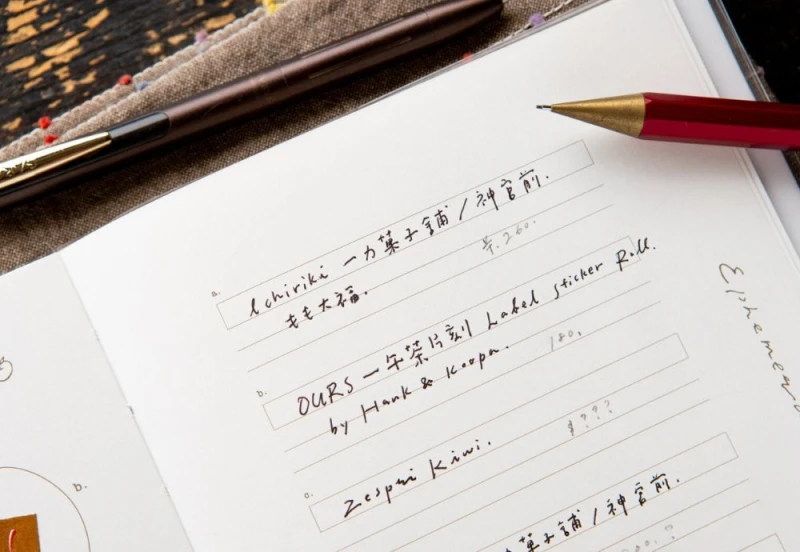 a.
Ichiriki 一力菓子舗/神宮前.
もも大福.
¥.260.
b.
OURS 一午茶片刻 Label Sticker Roll.
by Hank & Koopa.
180.
c.
Zespri Kiwi.
$???
菓子舗/神宮前.
b.